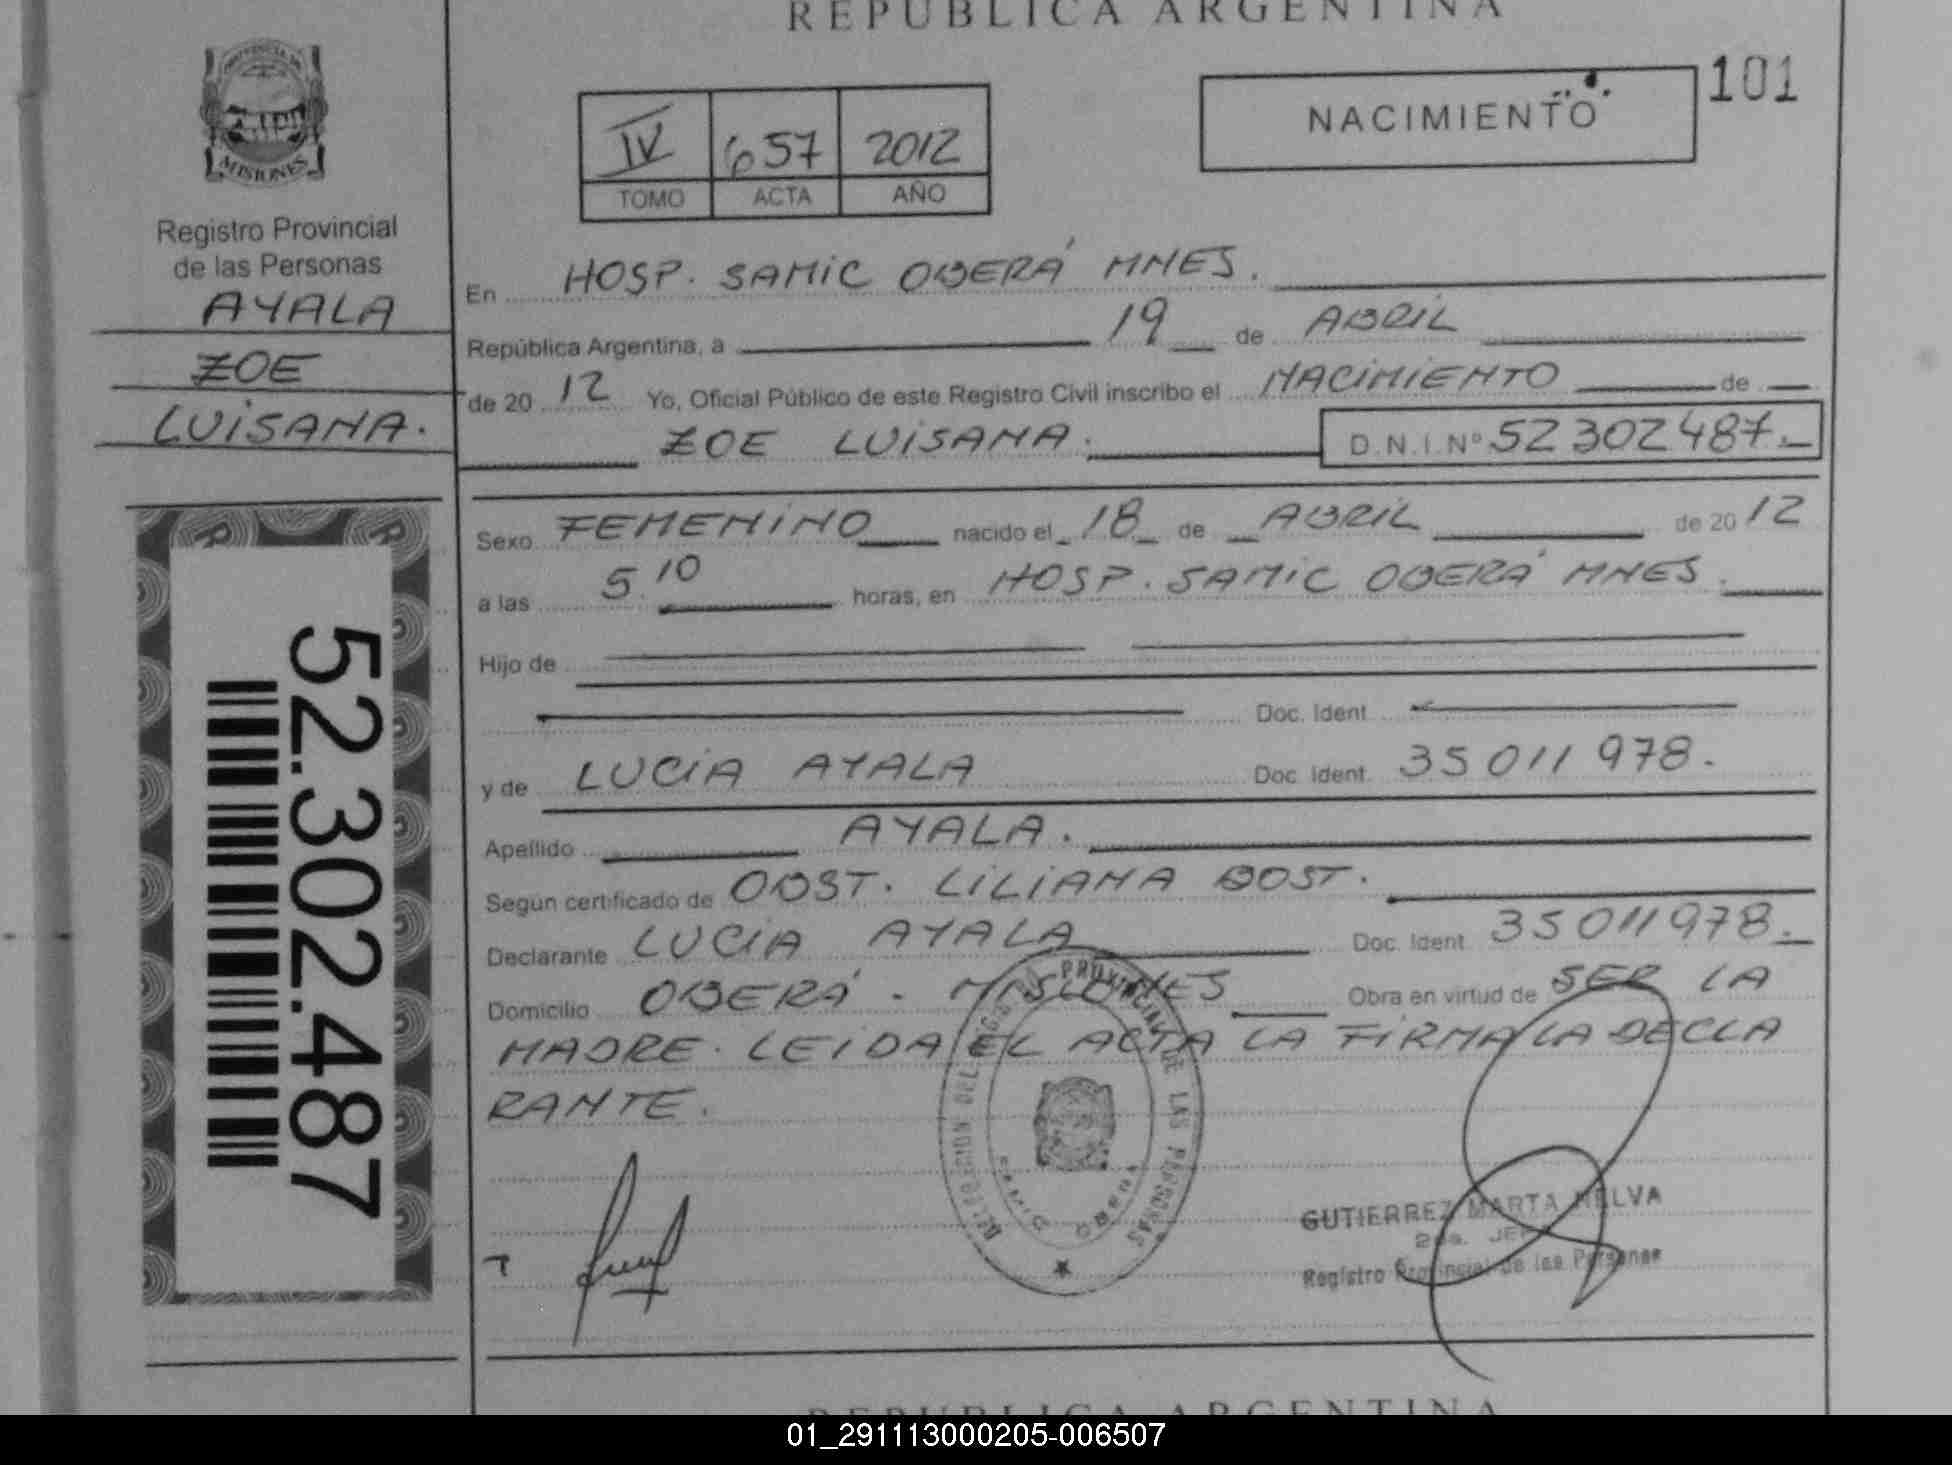 REPUBLICA ARGENTINA
PROVINCIA DE
MISIONES
Registro Provincial
de las Personas
AYALA
ZOE
LUISANA.
52.302.487
IV 657 2012
TOMO ACTA AÑO
NACIMIENTO
101
En HOSP. SAMIC OBERÁ MNES.
República Argentina, a 19 de ABRIL
de 20 12 Yo, Oficial Público de este Registro Civil inscribo el NACIMIENTO de
ZOE LUISANA. D.N.I.Nº 52 302 487.
Sexo FEMENINO nacido el 18 de ABRIL de 20 12
a las 5.10 horas, en HOSP. SAMIC OBERÁ MNES.
Hijo de
Doc. Ident.
y de LUCIA AYALA Doc. Ident. 35 011 978.
Apellido AYALA.
Según certificado de OBST. LILIANA BOST.
Declarante LUCIA AYALA Doc. Ident. 35 011 978.
Domicilio OBERÁ - MISIONES Obra en virtud de SER LA
MADRE. LEIDA EL ACTA LA FIRMA LA DECLA
RANTE.
PROVINCIAL DE LAS PERSONAS
SAMIC OBERA
GUTIERREZ MARTA NELVA
Registro Provincial de las Personas
REPUBLICA ARGENTINA
01_291113000205-006507